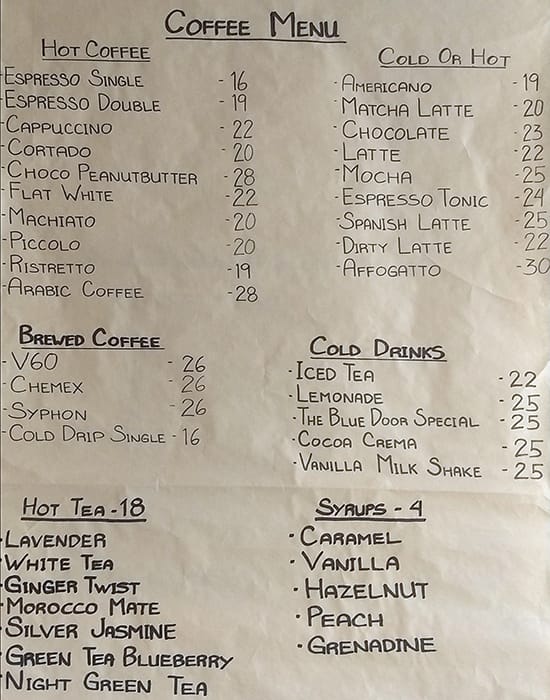 COFFEE MENU
HOT COFFEE
-ESPRESSO SINGLE -16
-ESPRESSO DOUBLE -19
-CAPPUCCINO -22
-CORTADO -20
-CHOCO PEANUTBUTTER -28
-FLAT WHITE -22
-MACHIATO -20
-PICCOLO -20
-RISTRETTO -19
-ARABIC COFFEE -28
COLD OR HOT
-AMERICANO -19
-MATCHA LATTE -20
-CHOCOLATE -23
-LATTE -22
-MOCHA -25
-ESPRESSO TONIC -24
-SPANISH LATTE -25
-DIRTY LATTE -22
-AFFOGATTO -30
BREWED COFFEE
-V60 -26
-CHEMEX -26
-SYPHON -26
-COLD DRIP SINGLE -16
COLD DRINKS
-ICED TEA -22
-LEMONADE -25
-THE BLUE DOOR SPECIAL -25
-COCOA CREMA -25
-VANILLA MILK SHAKE -25
HOT TEA -18
-LAVENDER
-WHITE TEA
-GINGER TWIST
-MOROCCO MATE
-SILVER JASMINE
-GREEN TEA BLUEBERRY
-NIGHT GREEN TEA
SYRUPS -4
-CARAMEL
-VANILLA
-HAZELNUT
-PEACH
-GRENADINE